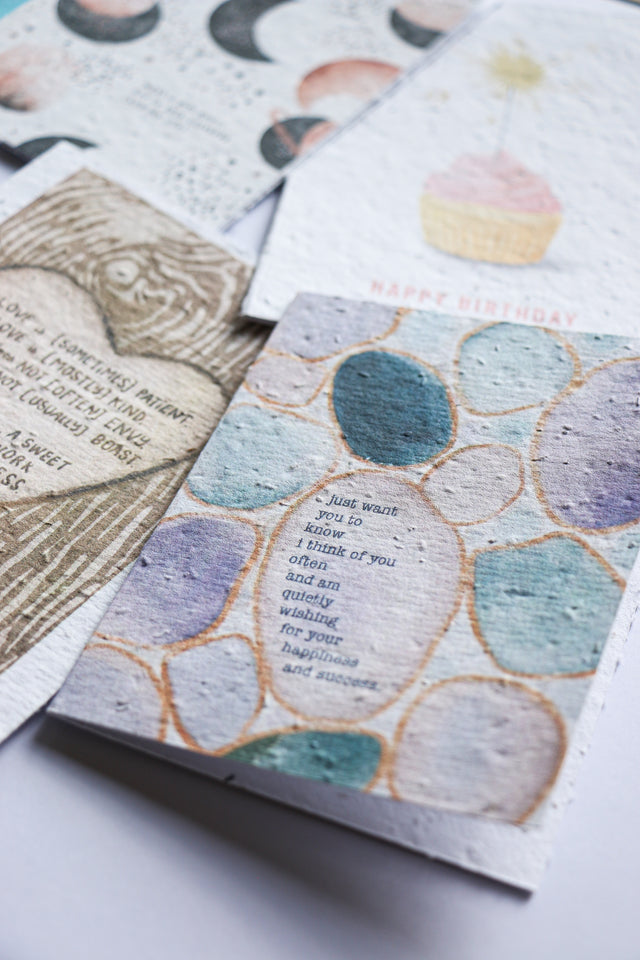 HAPPY BIRTHDAY
LOVE is (SOMETIMES) PATIENT.
LOVE is (MOSTLY) KIND.
NOT (OFTEN) ENVY
NOT (USUALLY) BOAST.
A SWEET
just want
you to
know
i think of you
often
and am
quietly
wishing
for your
happiness
and success.